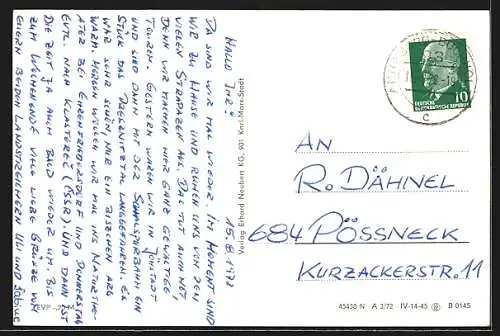 HALLO IHR!
15.8.1972
DA SIND WIR MAL WIEDER. IM MOMENT SIND
WIR ZU HAUSE UND RUHEN UNS VON DEN
VIELEN STRAPAZEN AUS. DAS TUT AUCH NOT,
DENN WIR MACHEN HIER GANZ GEWALTIGE
TOUREN. GESTERN WAREN WIR IN JÖHSTADT
UND SIND DANN MIT DER SCHMALSPURBAHN EIN
STÜCK DAS PREßNITZTAL LANGGEFAHREN. ES
WAR SEHR SCHÖN, NUR EIN BISZCHEN ARG
WARM. MORGEN WOLLEN WIR MAL INS NATURTHE-
ATER BEI EHRENFRIEDERSDORF UND DONNERSTAG
EVTL. NACH KLASTEREČ (ČSSR). UND DANN IST
DIE ZEIT JA AUCH BALD WIEDER UM. BIS
ZUM WOCHENENDE VIELE LIEBE GRÜSZE VON
EUERN BEIDEN LANDSTREICHERN ULI UND Sabine
Verlag Erhard Neubert KG, 901 Karl-Marx-Stadt
DEUTSCHE
DEMOKRATISCHE REPUBLIK
10
c
AN
R. DÄHNEL
684 PÖSSNECK
KURZACKERSTR. 11
45438 N A 2/72 IV-14-45 B 0145